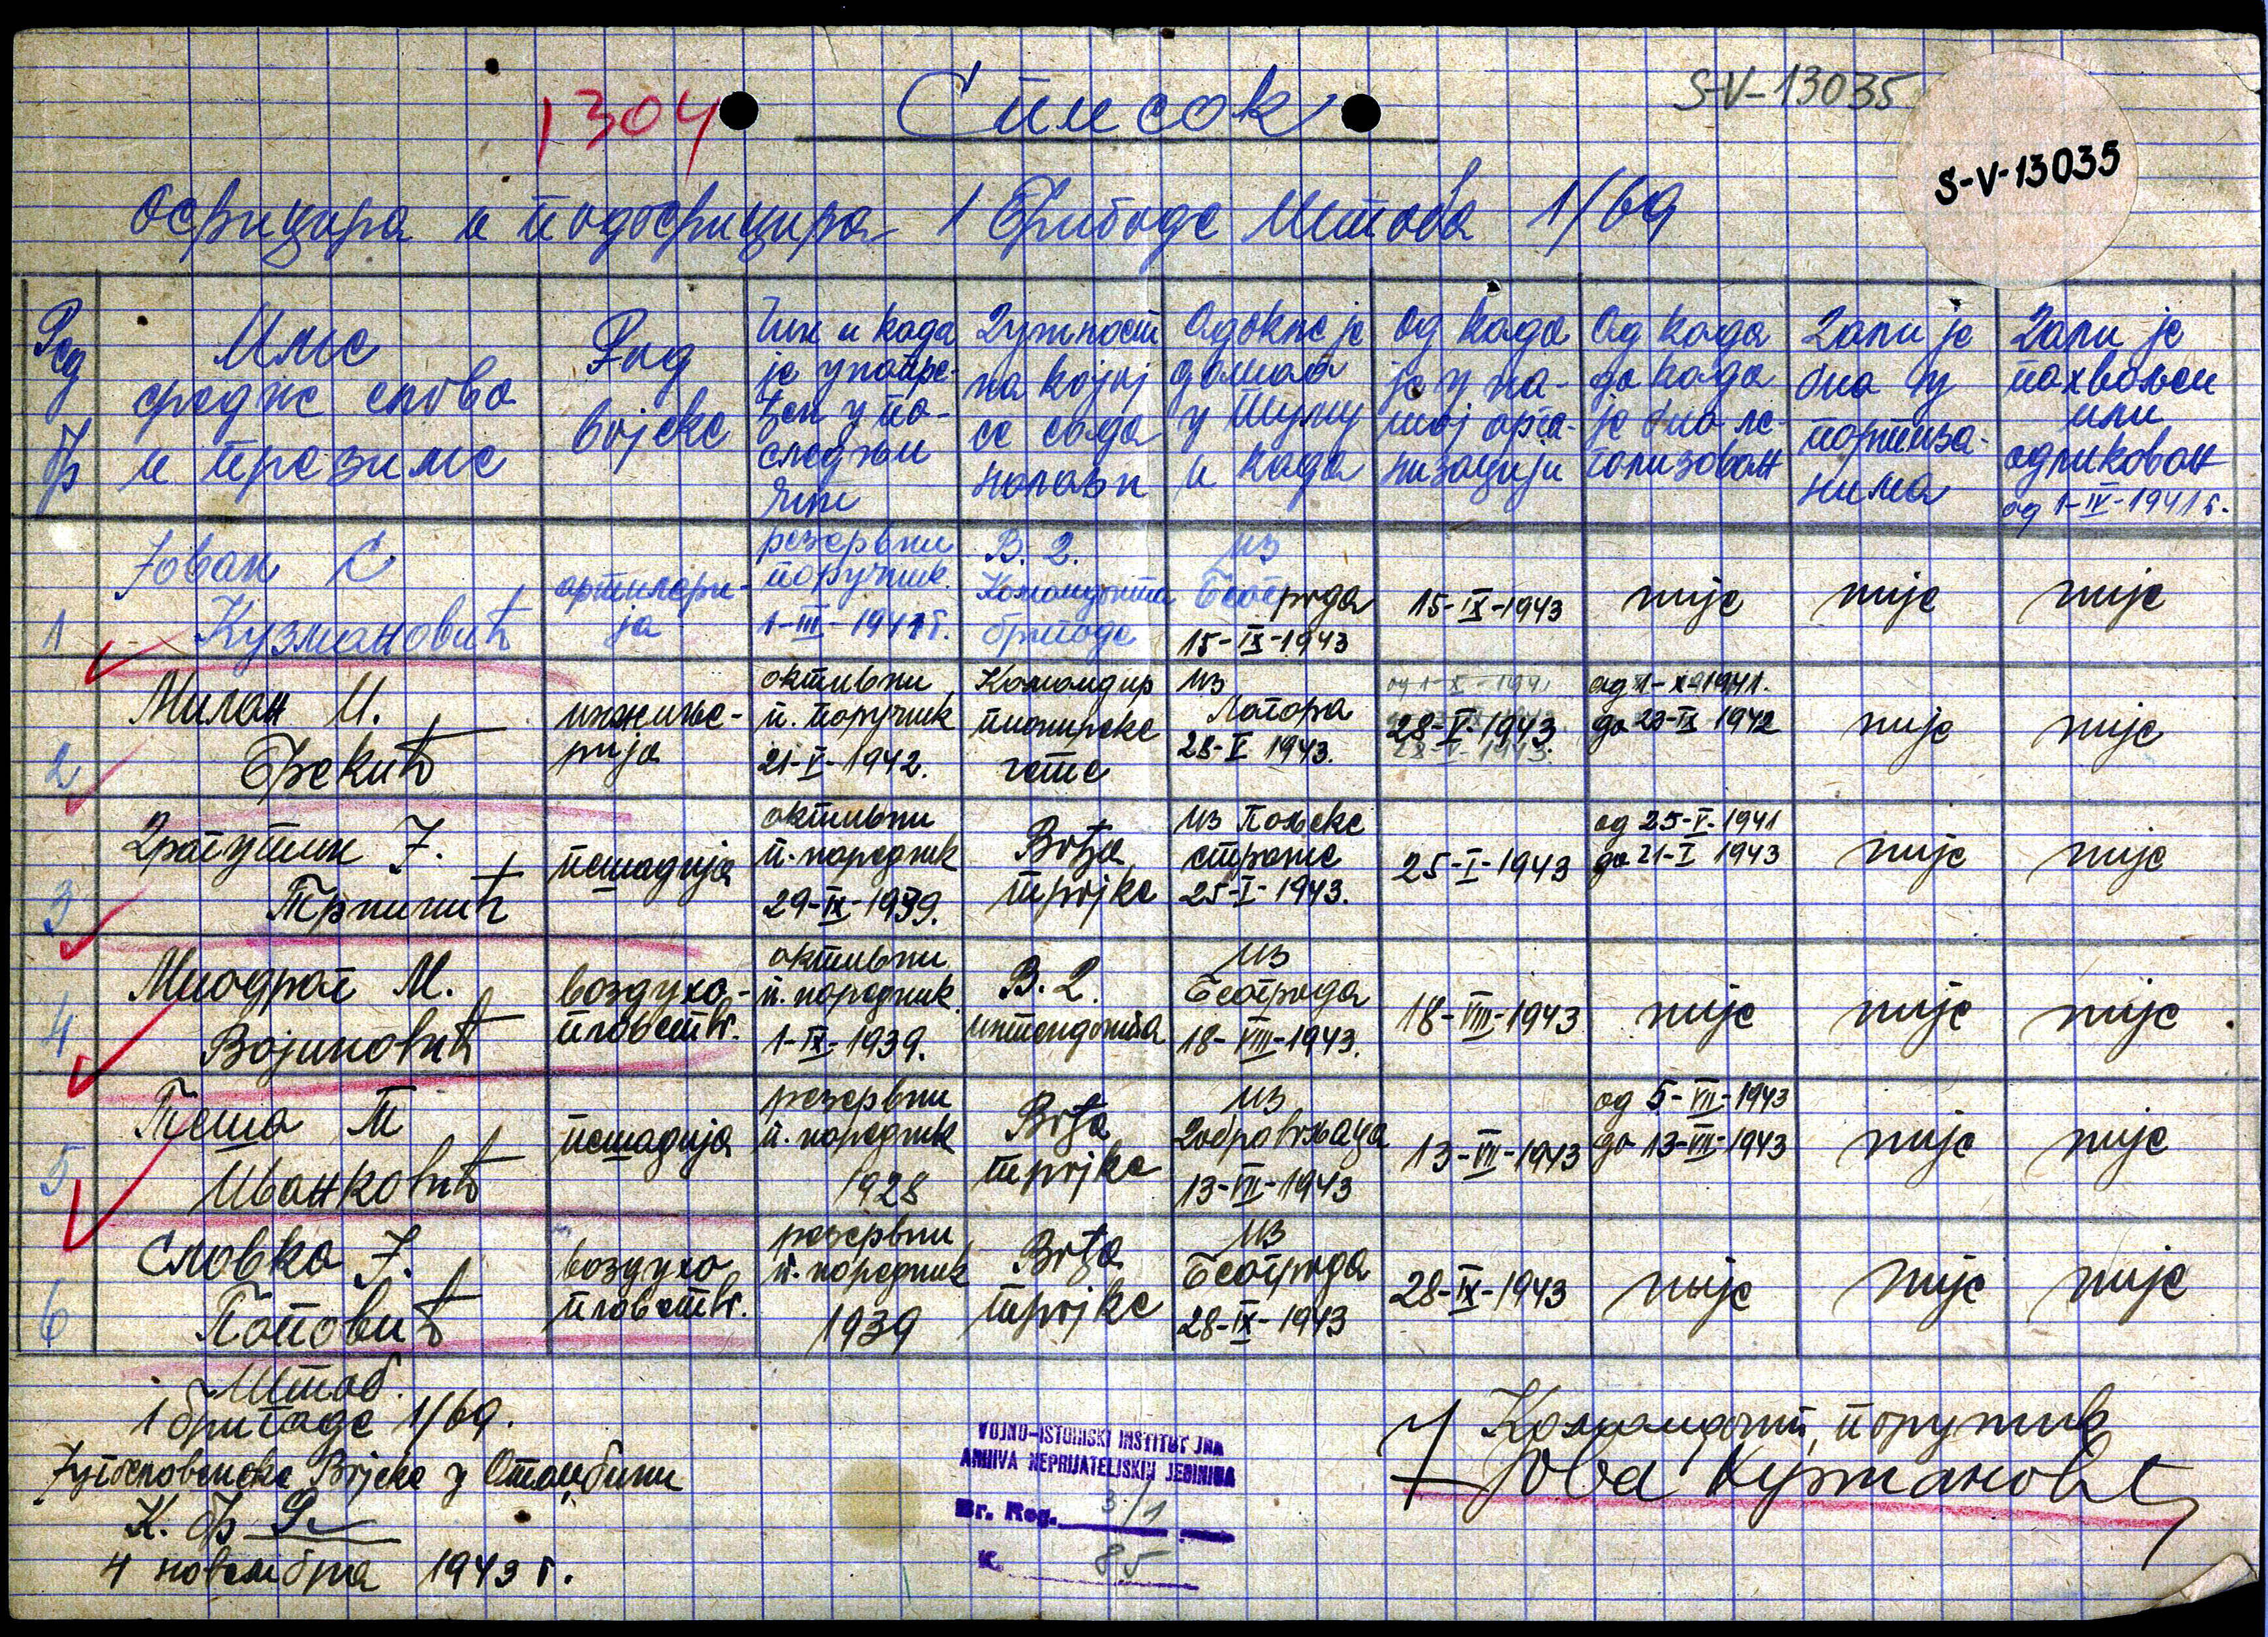 1304 Списак S-V-13035
S-V-13035
официра и подофицира 1 Бригаде Штаба 1/69
Ред бр
Име средње слово и презиме
Род војске
Чин и када је унапређен у последњи чин
Дужност на којој се сада налази
Одакле је дошао у Шуму и када
Од када је у нашој организацији
Од када до када је био легализован
Дали је био у партизанима
Дали је похваљен или одликован од 1-IV-1941 г.
1 Јован С Кузмановић
артилерија
резервни поручник 1-III-1941 г.
В. Д. Команданта бригаде
Из Београда 15-IX-1943
15-IX-1943
није
није
није
2 Милан И. Брекић
инжињерија
активни п. поручник 21-V-1942.
Командир пионирске чете
Из Логора 28-V 1943.
28-V-1943.
од 1-X-1941. до 23-IX 1942
није
није
3 Драгутин Ј. Трпинић
пешадија
активни п. наредник 29-IX-1939.
Вођа тројке
Из Пољске страже 25-I-1943.
25-I-1943
од 25-V-1941 до 21-I 1943
није
није
4 Миодраг М. Војиновић
Воздухопловств.
активни п. наредник 1-IX-1939.
В. Д. интенданта
Из Београда 18-VIII-1943.
18-VIII-1943
није
није
није
5 Теша Т Иванковић
пешадија
резервни п. наредник 1928
Вођа тројке
Из Добровољаца 13-VII-1943
13-VII-1943
од 5-VII-1943 до 13-VII-1943
није
није
6 Славко Ј. Поповић
Воздухопловств.
резервни п. наредник 1939
Вођа тројке
Из Београда 28-IX-1943
28-IX-1943
није
није
није
Штаб.
1 бригаде 1/69.
Југословенске Војске у Отаџбини
К. бр
4 новембра 1943 г.
VOJNO-ISTORISKI INSTITUT JNA
ARHIVA NEPRIJATELJSKIH JEDINICA
Br. Reg. 3/1
K. 85
Командант, поручник
Јова Кузмановић